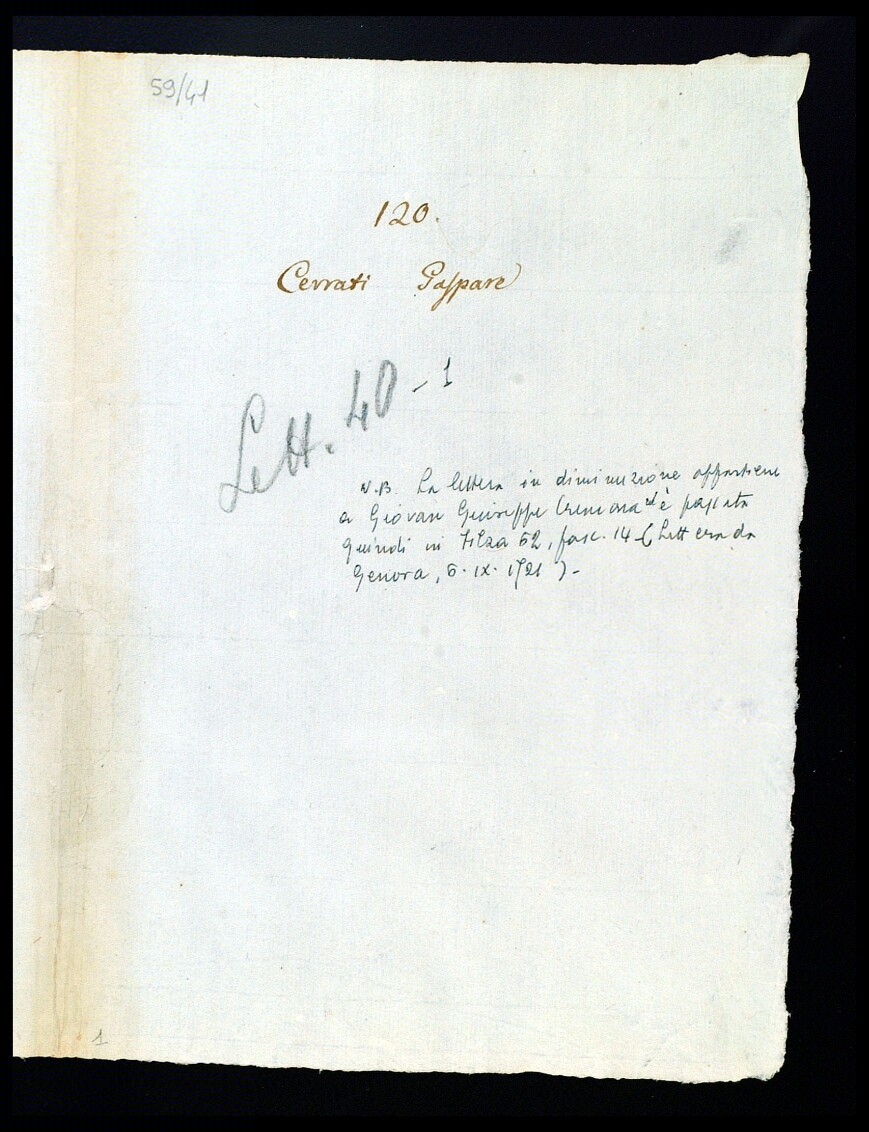 59/41
120.
Cerrati Gaspare
Lett. 40 - 1
N.B. La lettera in diminuzione appartiene
a Giovan Giuseppe Cremona ed è passata
quindi in Filza 52, fasc. 14 (Lettera da
Genova, 6. IX. 1721) -
1